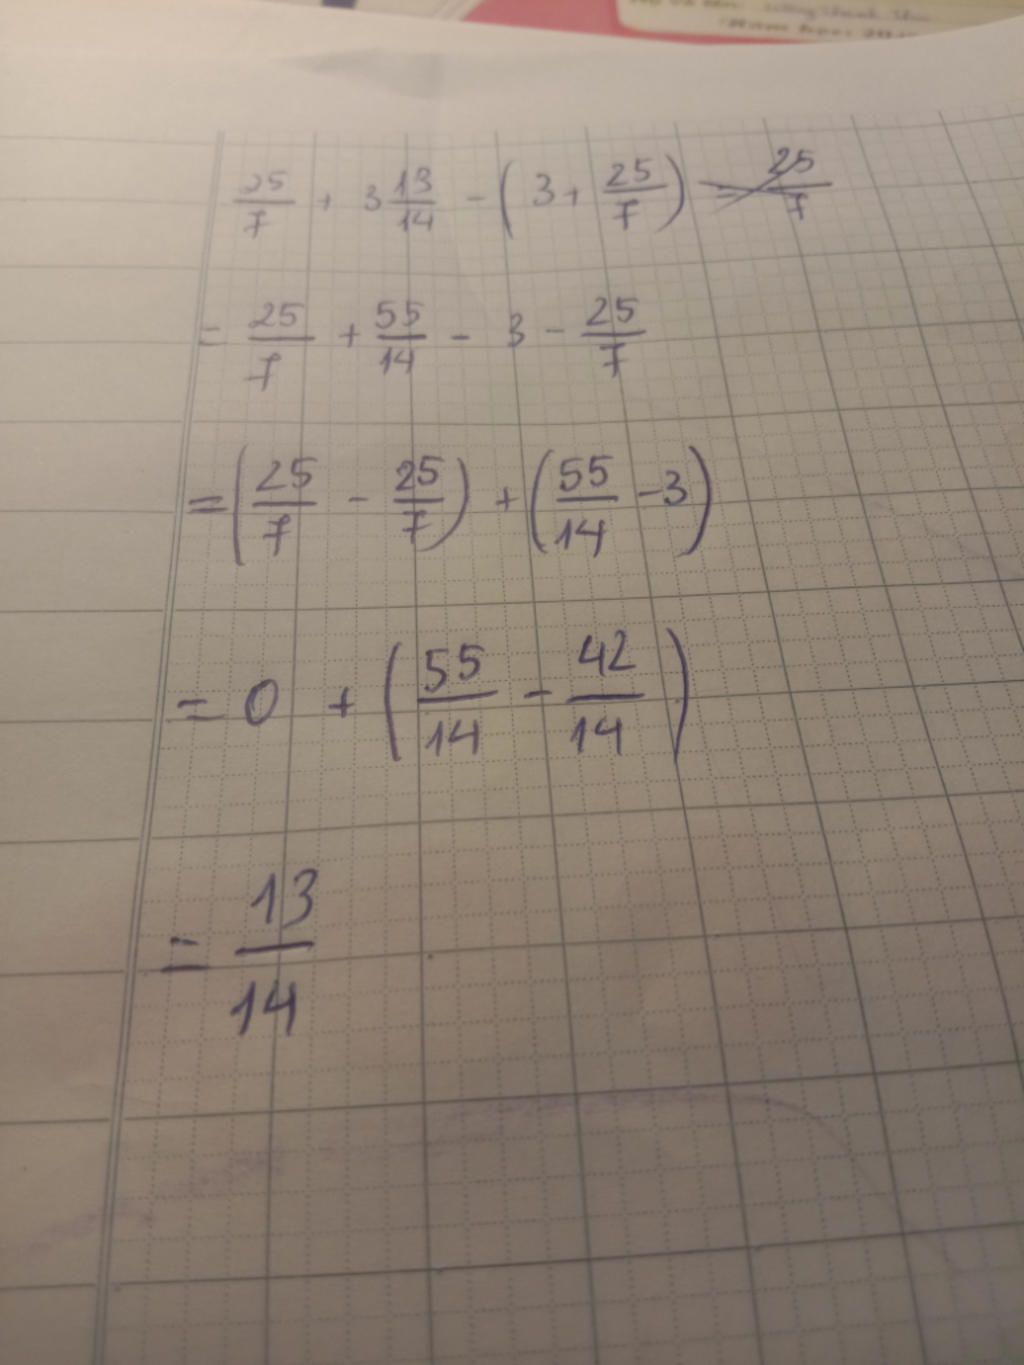 25/7 + 3 13/14 - (3 + 25/7) = 25/7
= 25/7 + 55/14 - 3 - 25/7
= (25/7 - 25/7) + (55/14 - 3)
= 0 + (55/14 - 42/14)
= 13/14